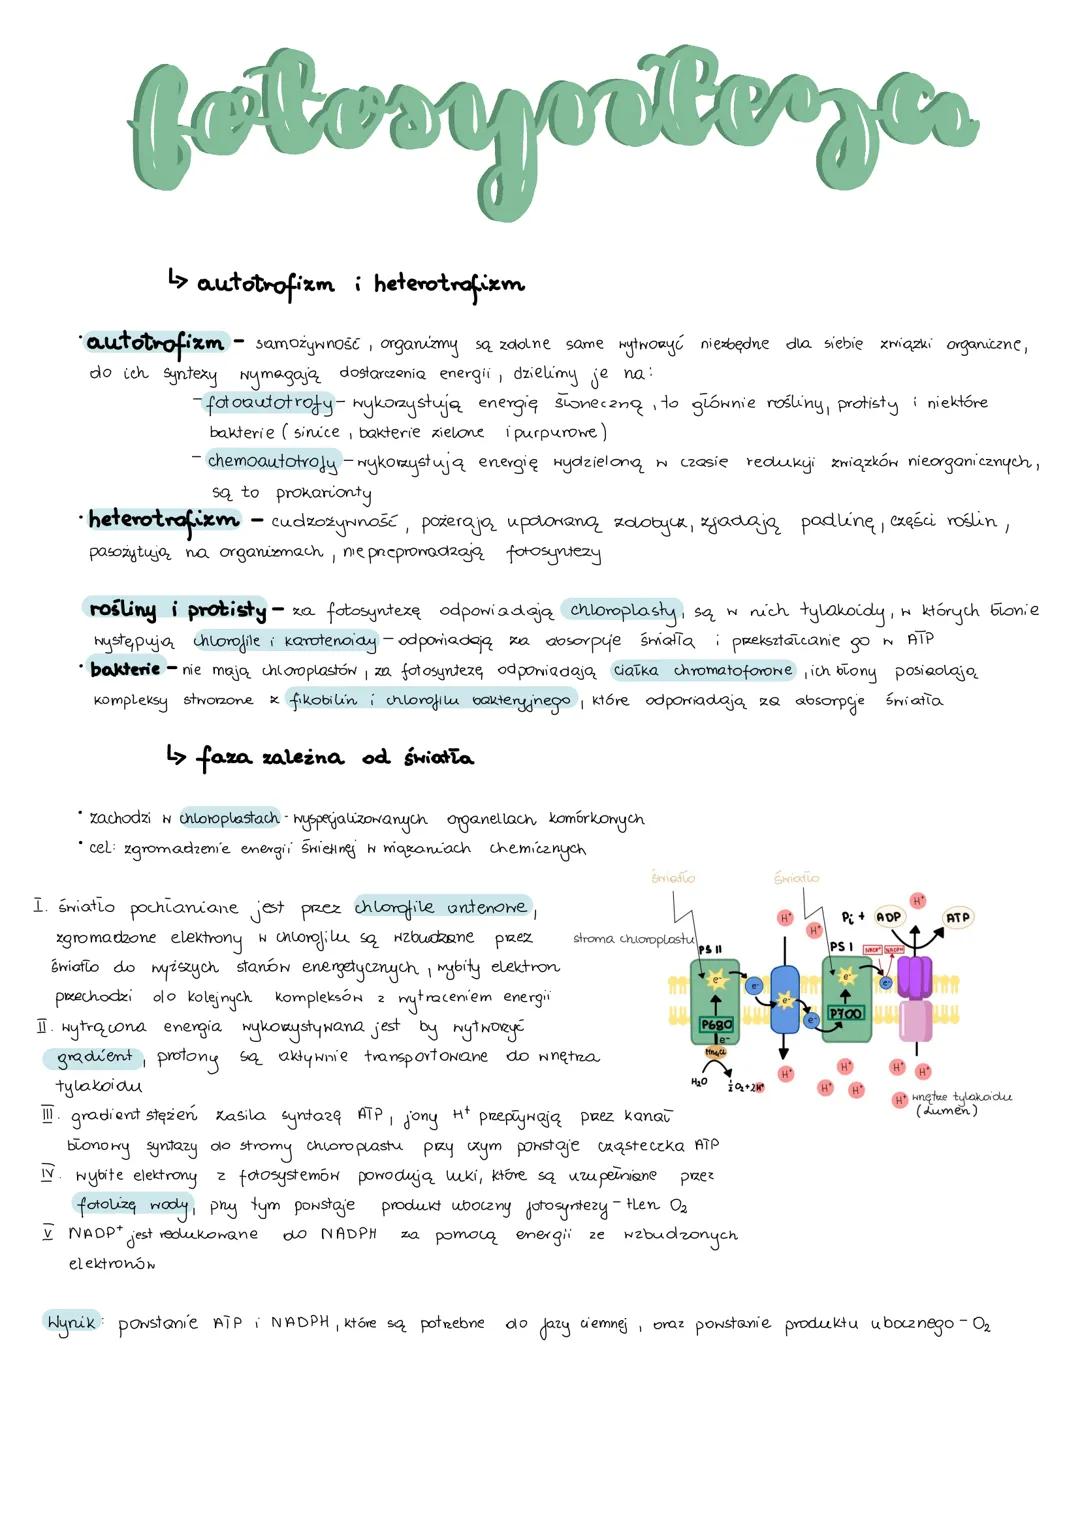 fotosynteza
↳ autotrofizm i heterotrofizm
· autotrofizm – samożywność, organizmy są zdolne same wytworzyć niezbędne dla siebie związki organiczne,
do ich syntezy wymagają dostarczenia energii, dzielimy je na:
– fotoautotrofy – wykorzystują energię słoneczną, to głównie rośliny, protisty i niektóre
bakterie (sinice, bakterie zielone i purpurowe)
– chemoautotrofy – wykorzystują energię wydzieloną w czasie redukcji związków nieorganicznych,
są to prokarionty
· heterotrofizm – cudzożywność, pożerają upolowaną zdobycz, zjadają padlinę, części roślin,
pasożytują na organizmach, nie przeprowadzają fotosyntezy
rośliny i protisty – za fotosyntezę odpowiadają chloroplasty, są w nich tylakoidy, w których błonie
występują chlorofile i karotenoidy – odpowiadają za absorpcje światła i przekształcanie go w ATP
· bakterie – nie mają chloroplastów, za fotosyntezę odpowiadają ciałka chromatoforowe, ich błony posiadają
kompleksy stworzone z fikobilin i chlorofilu bakteryjnego, które odpowiadają za absorpcje światła
↳ faza zależna od światła
· zachodzi w chloroplastach - wyspecjalizowanych organellach komórkowych
· cel: zgromadzenie energii świetlnej w wiązaniach chemicznych
I. światło pochłaniane jest przez chlorofile antenowe,
zgromadzone elektrony w chlorofilu są wzbudzane przez
światło do wyższych stanów energetycznych, wybity elektron
przechodzi do kolejnych kompleksów z wytraceniem energii
II. wytrącona energia wykorzystywana jest by wytworzyć
gradient, protony są aktywnie transportowane do wnętrza
tylakoidu
III. gradient stężeń zasila syntazę ATP, jony H⁺ przepływają przez kanał
błonowy syntazy do stromy chloroplastu przy czym powstaje cząsteczka ATP
IV. wybite elektrony z fotosystemów powodują luki, które są uzupełniane przez
fotolizę wody, przy tym powstaje produkt uboczny fotosyntezy – tlen O₂
V NADP⁺ jest redukowane do NADPH za pomocą energii ze wzbudzonych
elektronów
światło
światło
stroma chloroplastu
PS II
PS I
Pi + ADP
ATP
NADP⁺ NADPH
H⁺
H⁺
H⁺
e⁻
e⁻
e⁻
e⁻
e⁻
e⁻
P680
P700
e⁻
Mn₄Cl
H₂O
½O₂+2H⁺
H⁺
H⁺
H⁺
H⁺
H⁺
H⁺
H⁺ wnętrze tylakoidu
(Lumen)
Wynik: powstanie ATP i NADPH, które są potrzebne do fazy ciemnej, oraz powstanie produktu ubocznego – O₂